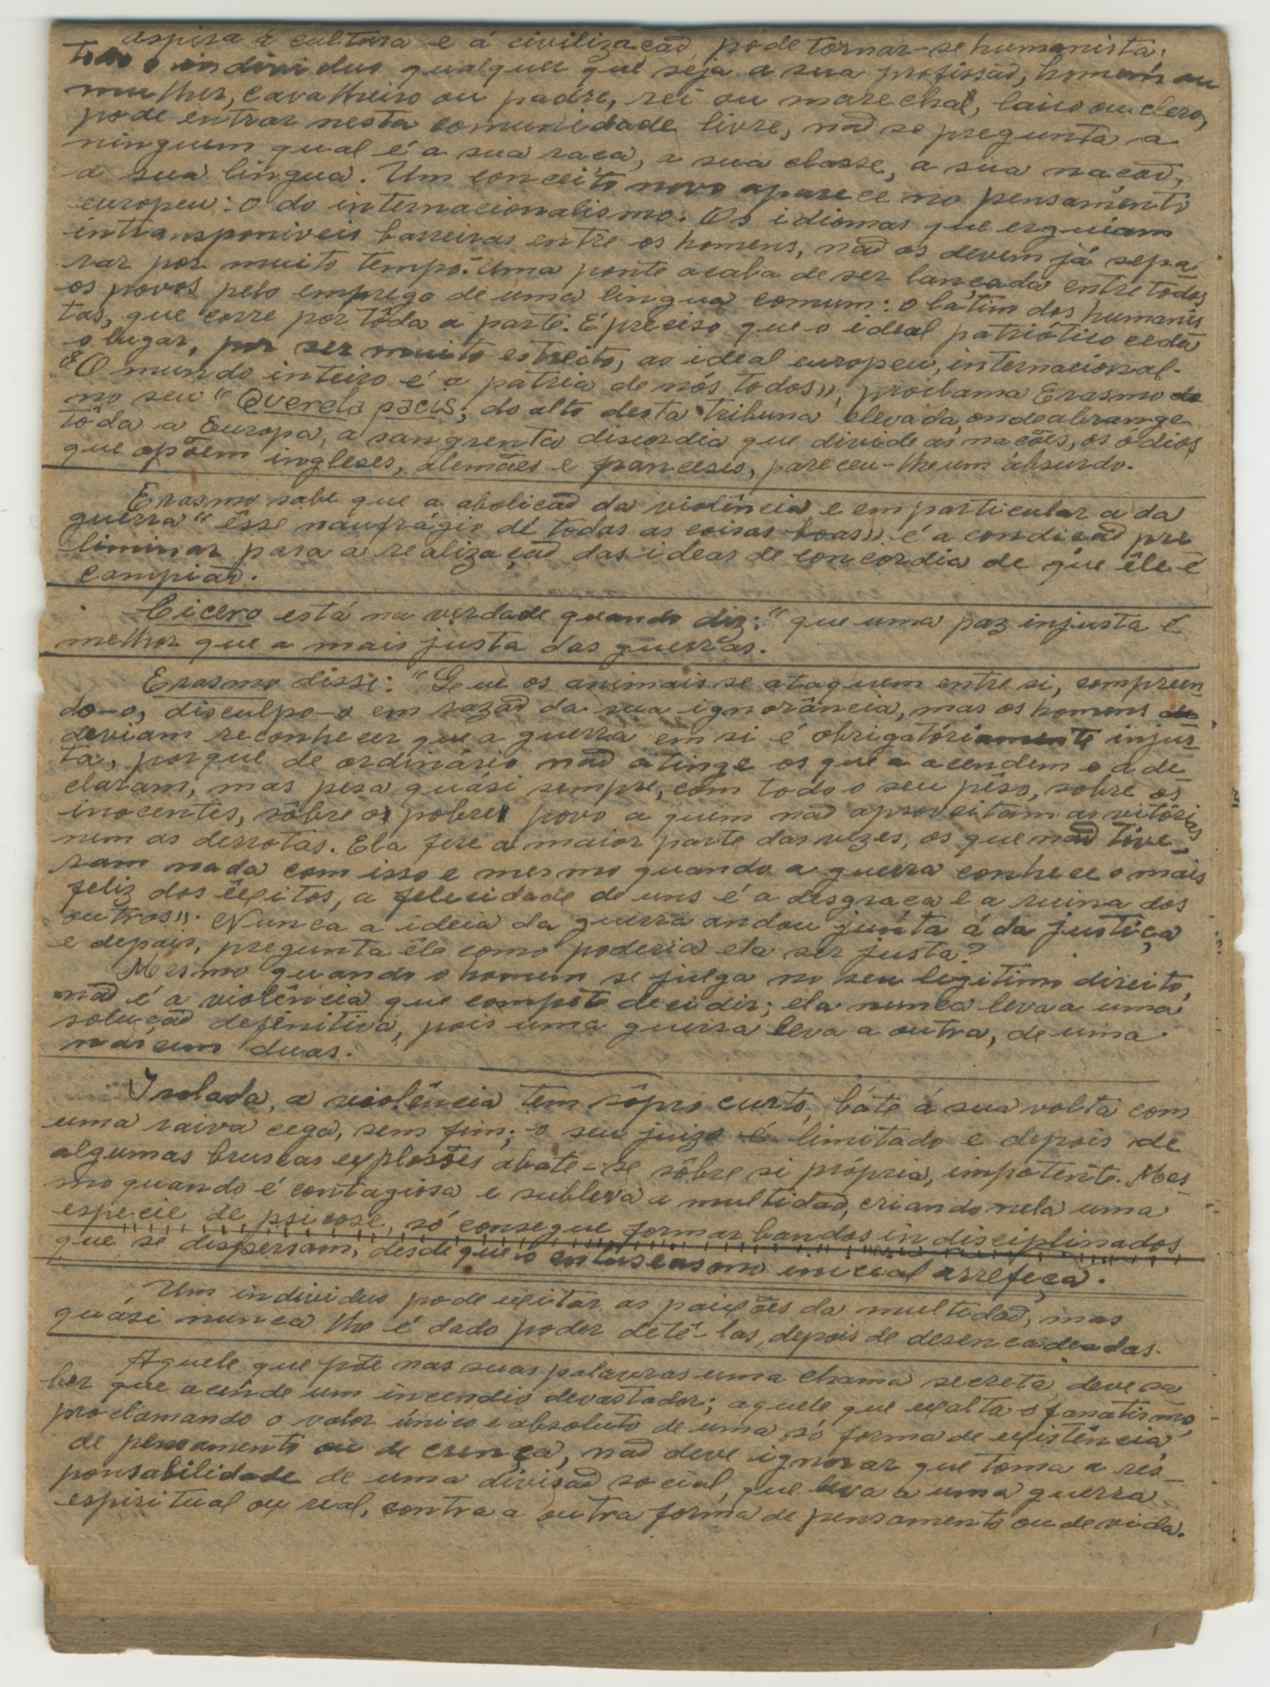 aspira á cultura e á civilização pode tornar-se humanista.
Todo o individuo qualquer que seja a sua profissão, homem ou
mulher, cavalheiro ou padre, rei ou marechal, laico ou clero,
pode entrar nesta comunidade livre, não se pregunta a
ninguem qual é a sua raça, a sua classe, a sua nação,
a sua lingua. Um conceito novo aparece no pensamento
europeu: o do internacionalismo. Os idiomas que erguiam
intransponiveis barreiras entre os homens, não os devem já sepa
rar por muito tempo. Uma ponte acaba de ser lançada entre todos
os povos pelo emprego de uma lingua comum: o latim dos humanis
tas, que corre por tôda a parte. É preciso que o ideal patriótico ceda
o lugar, por ser muito estreito, ao ideal europeu, internacional.
"O mundo inteiro é a pátria de nós todos", proclama Erasmo
no seu "Querela pacis; do alto desta tribuna elevada, onde abrange
tôda a Europa, a sangrenta discordia que divide as nações, os odios
que opõem ingleses, alemães e franceses, pareceu-lhe um absurdo.
Erasmo sabe que a abolição da violência e em particular a da
guerra "êsse naufrágio de todas as coisas boas" é a condição pre
liminar para a realização das ideas de concordia de que êle é
campião.
Cicero está na verdade quando diz: "que uma paz injusta é
melhor que a mais justa das guerras.
Erasmo disse: "Que os animais se ataquem entre si, compreen
do-o, disculpo-o em razão da sua ignorância, mas os homens
deviam reconhecer que a guerra em si é obrigatóriamente injus
ta, porque de ordinário não atinge os que a acendem e a de
claram, mas pesa quási sempre, com todo o seu pêso, sôbre os
inocentes, sôbre o pobre povo a quem não aproveitam as vitórias
nem as derrotas. Ela fere a maior parte das vezes, os que não tive-
ram nada com isso e mesmo quando a guerra conhece o mais
feliz dos êxitos, a felicidade de uns é a desgraça e a ruina dos
outros". Nunca a ideia da guerra andou junta á da justiça
e depois, pregunta êle como poderia ela ser justa?
Mesmo quando o homem se julga no seu legitimo direito,
não é a violência que compete decidir; ela nunca leva a uma
solução definitiva, pois uma guerra leva a outra, de uma
nascem duas.
Isolada, a violência tem sôpro curto, bate á sua volta com
uma raiva cega, sem fim; o seu juizo é limitado e depois de
algumas bruscas explosões abate-se sôbre si própria, impotente. Mes-
mo quando é contagiosa e subleva a multidão, criando nela uma
especie de psicose, só consegue formar bandos indisciplinados,
que se dispersam, desde que o entusiasmo inicial arrefeça.
Um individuo pode exitar as paixões da multidão, mas
quási nunca lhe é dado poder detê-las, depois de desencadeadas.
Aquele que põe nas suas palavras uma chama secreta, deve sa
ber que acende um incendio devastador; aquele que exalta o fanatismo
proclamando o valor único e absoluto de uma só forma de existência,
de pensamento ou de crença, não deve ignorar que toma a res-
ponsabilidade de uma divisão social, que leva a uma guerra
espiritual ou real, contra a outra forma de pensamento ou de vida.